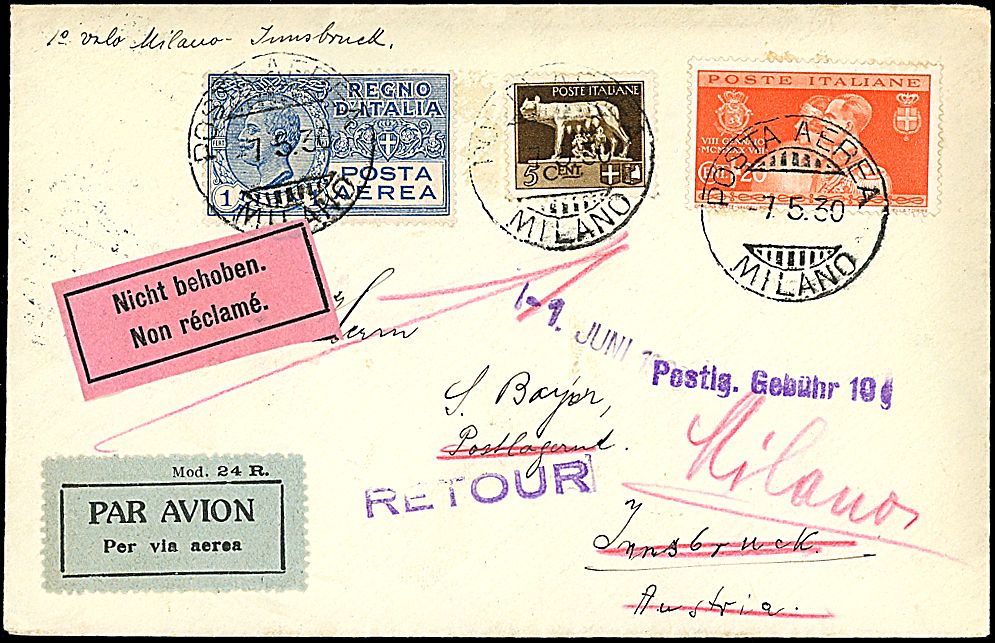 1º volo Milano - Innsbruck.
REGNO
D'ITALIA
POSTA
AEREA
1
POSTE ITALIANE
5 CENT
POSTE ITALIANE
VIII GENNAIO
MCMXXX VIII
20
POSTA AEREA
-7 5 30
MILANO
MILANO
POSTA AEREA
-7.5.30
MILANO
Nicht behoben.
Non réclamé.
Herrn
-1. JUNI
Postlg. Gebühr 10g
S. Bayor,
Postlagernd.
Milano
RETOUR
Innsbruck.
Austria.
Mod. 24 R.
PAR AVION
Per via aerea